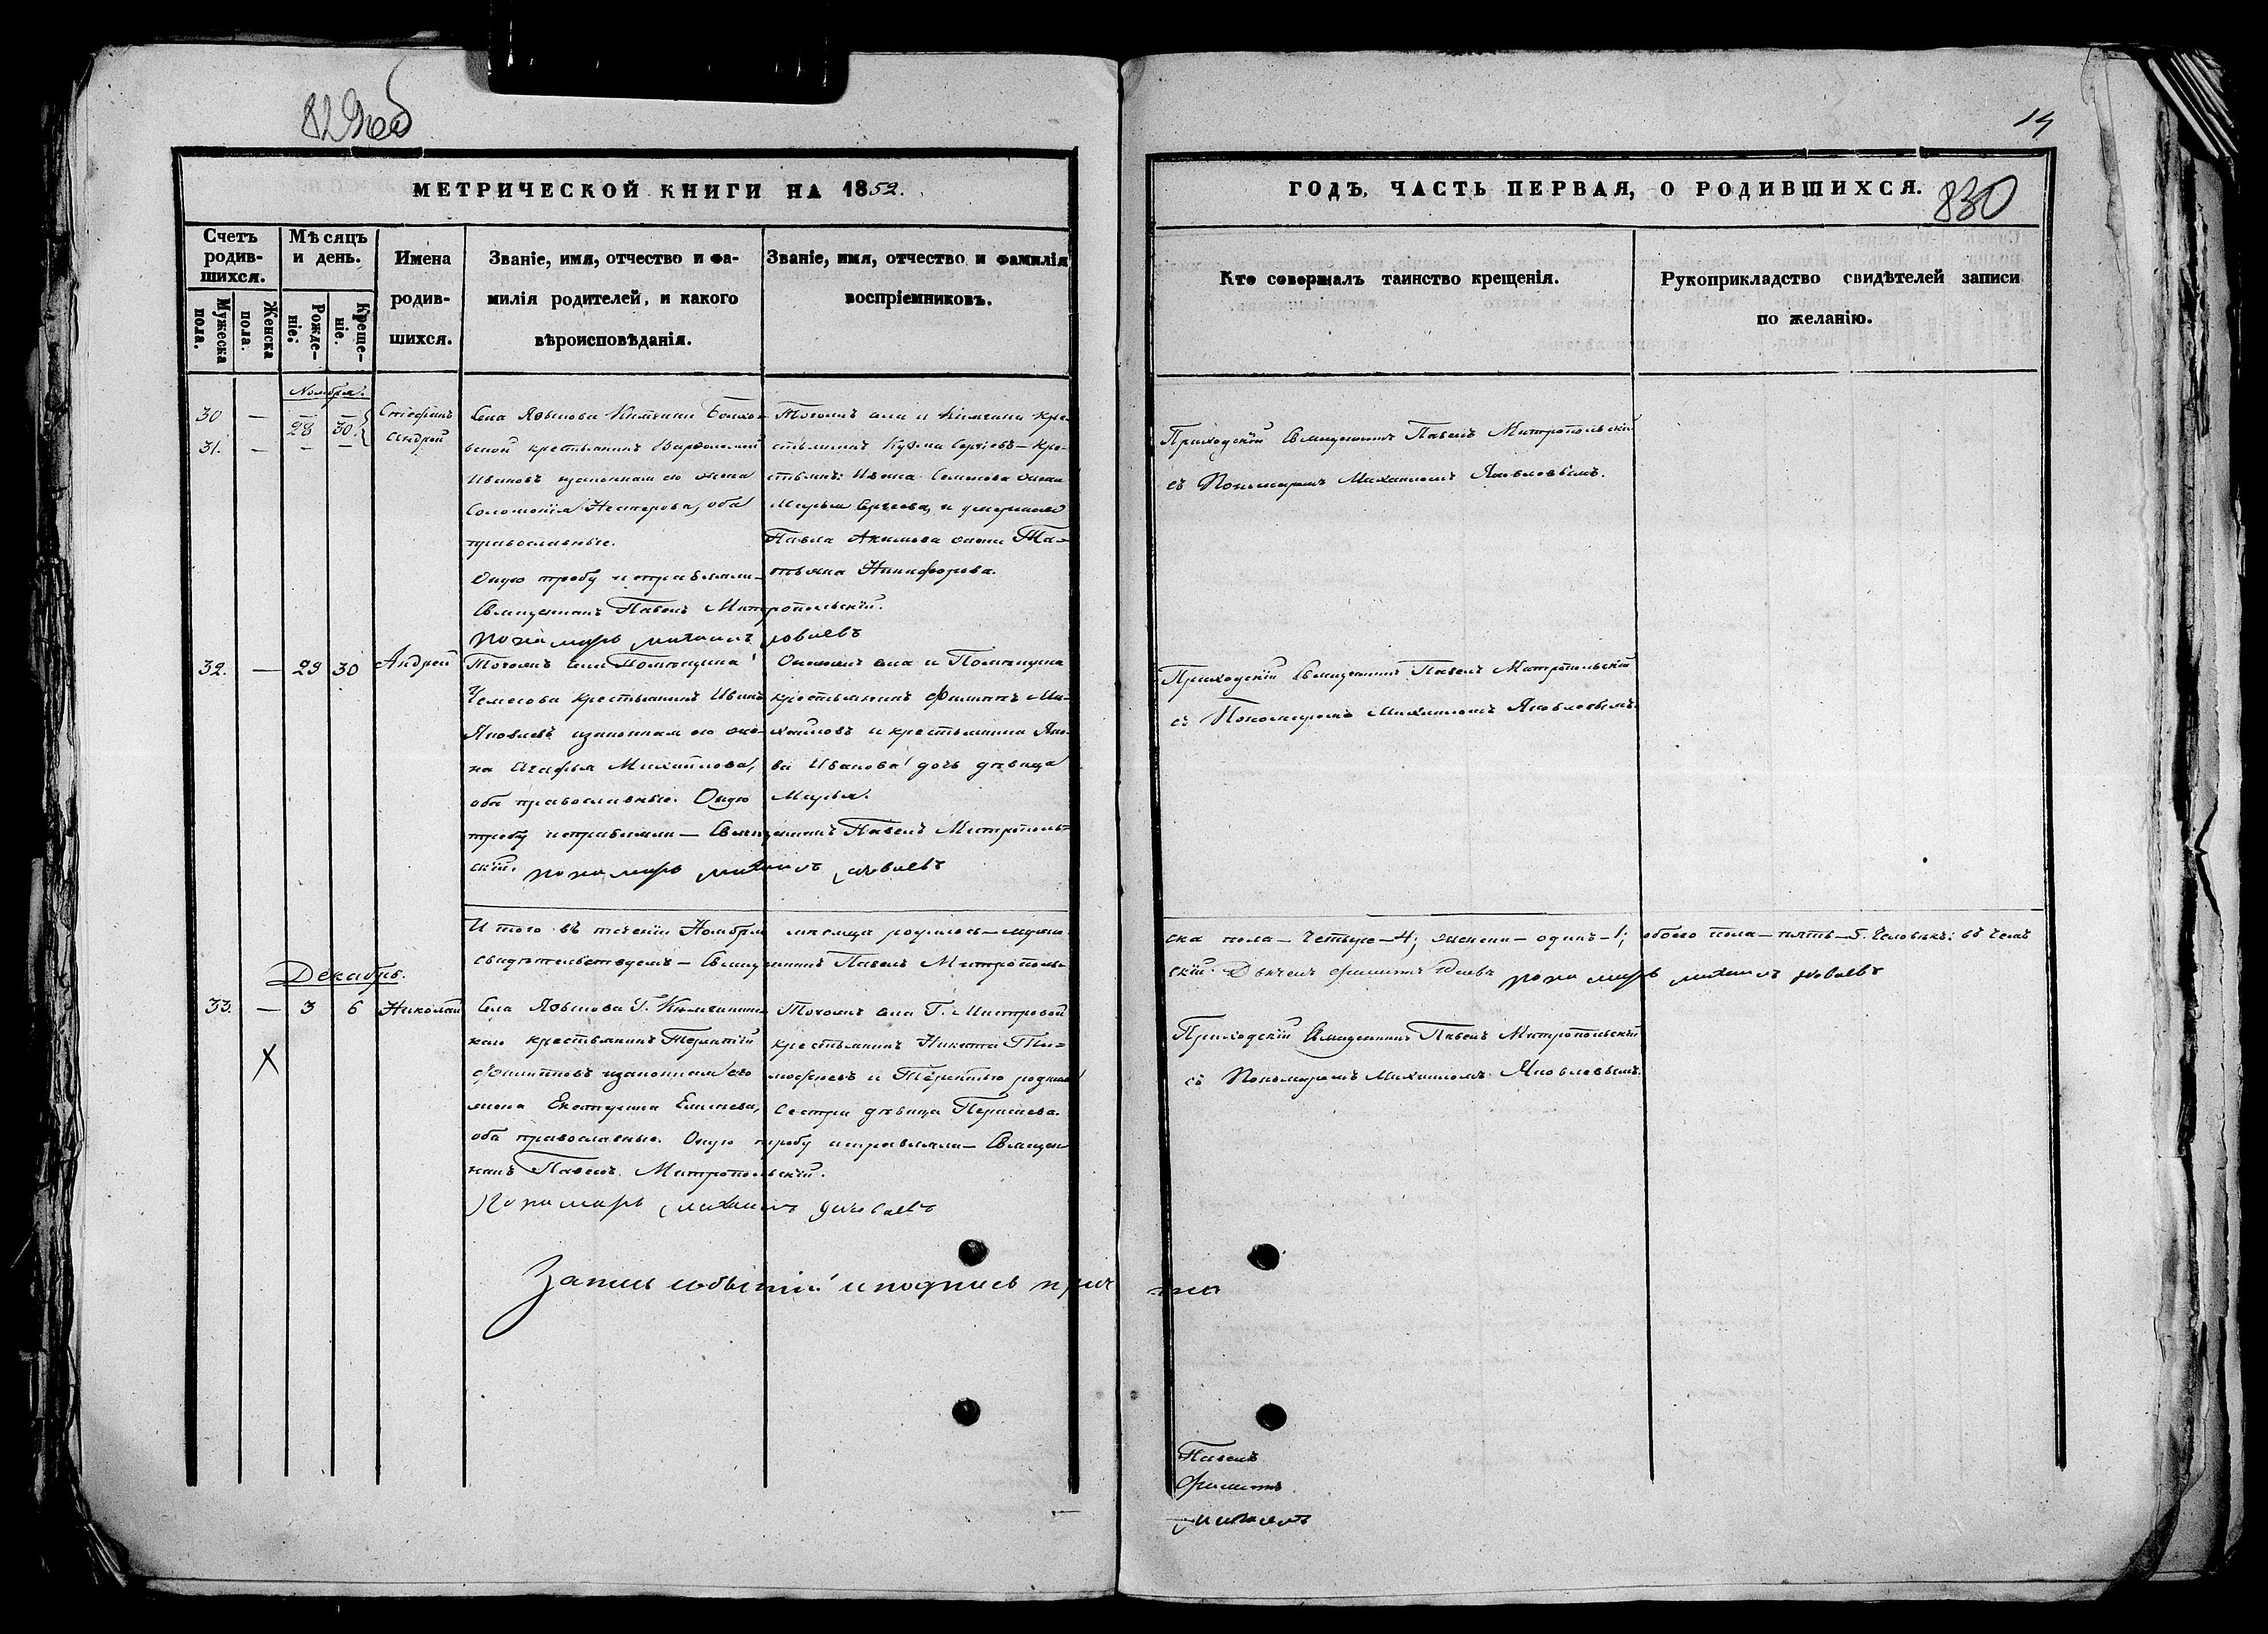 829 об
14
МЕТРИЧЕСКОЙ КНИГИ НА 1852.
ГОДЪ, ЧАСТЬ ПЕРВАЯ, О РОДИВШИХСЯ.
830
Счетъ родив-шихся.
Мужеска пола.
Женска пола.
Мѣсяцъ и день.
Рожде-ніе.
Креще-ніе.
Имена родив-шихся.
Званіе, имя, отчество и фа-
милія родителей, и какого
вѣроисповѣданія.
Званіе, имя, отчество и фамилія
воспріемниковъ.
Кто совершалъ таинство крещенія.
Рукоприкладство свидѣтелей записи
по желанію.
Ноября.
30 — 28 30 Стефанъ
31. — Андрей
Села Языкова
крестьянинъ Варѳоломей
Ивановъ изаконная его жена
Соломонія Нестерова, оба
православные.
Оную требу исправляли—
Священникъ Павелъ Митропольскій.
пономарь михаилъ яковлевъ
Тогожъ села и крестьянинъ Кузма Сергѣевъ — кре-
стьян: Ивана Семенова жена
Марья Сергѣева, и умершаго
Павла Акимова жена Та-
тьяна Никифорова.
Приходскій Священникъ Павелъ Митропольскій
съ Пономаремъ Михаиломъ Яковлевымъ.
32. — 29 30 Андрей
Тогожъ села Помѣщика
крестьянинъ Иванъ
Яковлевъ изаконная его же-
на Агафья Михайлова,
оба православные. Оную
требу исправляли — Священникъ Павелъ Митрополь-
скій. пономарь михаилъ яковлевъ
села и Помѣщика
крестьянинъ Филиппъ Ми-
хайловъ и крестьянина Яко-
ва Иванова дочь дѣвица
Марья.
Приходскій Священникъ Павелъ Митропольскій
съ Пономаремъ Михаиломъ Яковлевымъ.
Итого въ теченіи Ноября мѣсяца родилось — муже-
ска пола — четыре — 4; женска — одинъ — 1; обоего пола — пять — 5. Человѣкъ: въ чемъ
свидѣтельствуемъ — Священникъ Павелъ Митрополь-
скій. Дьячекъ филиппъ пономарь михаилъ яковлевъ
Декабрь.
33. — 3 6 Николай
X
Села Языкова Г.
крестьянинъ Терентій
Филипповъ изаконная его
жена Екатерина Елисѣева,
оба православные. Оную требу исправляли — Священ-
никъ Павелъ Митропольскій.
Пономарь михаилъ яковлевъ
Тогожъ села Г.
крестьянинъ Никита Ти-
мофѣевъ и Терентью родная
Сестра дѣвица
Приходскій Священникъ Павелъ Митропольскій
съ Пономаремъ Михаиломъ Яковлевымъ.
Запись событій и подпись причта
Павелъ
Филиппъ
михаилъ